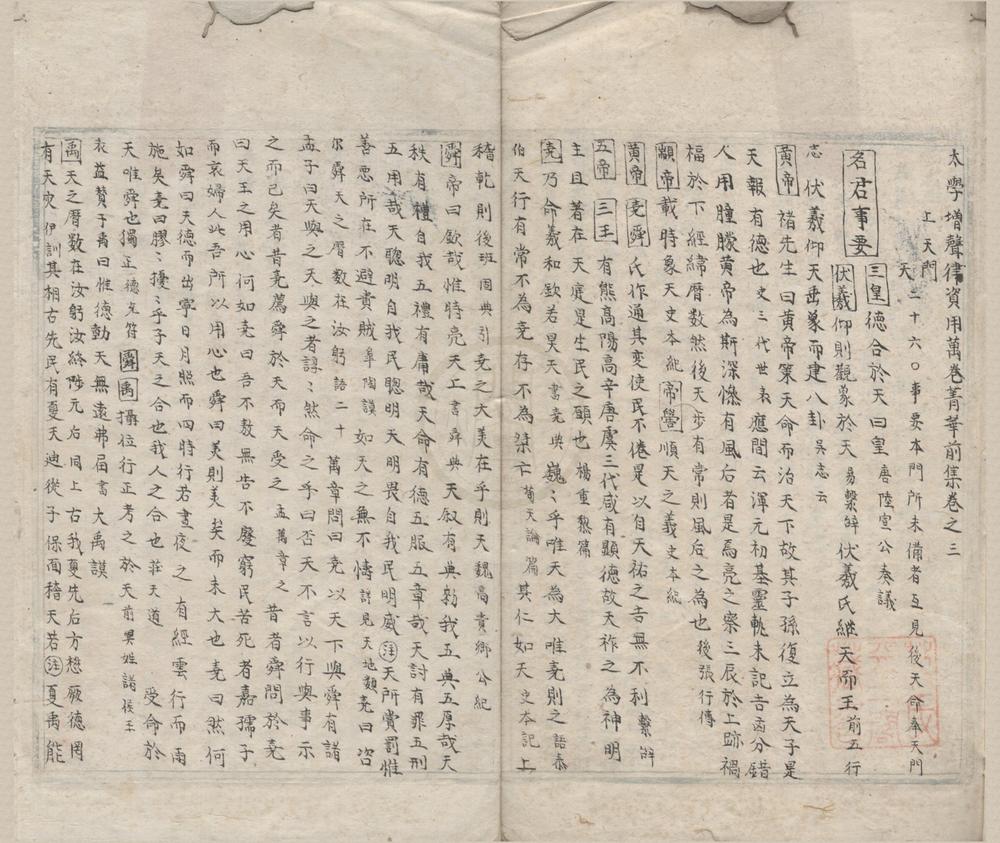 太學增聲律資用萬卷菁華前集卷之三
上天門
天 二十六〇事要本門所未備者互見後天命奉天門
名君事要 三皇 德合於天曰皇 唐陸宣公奏議
伏羲 仰則觀象於天 易繫辭 伏羲氏繼天而王 前五行
志 伏羲仰天垂象而建八卦 吳志云
黃帝 褚先生曰黃帝策天命而治天下故其子孫復立為天子是
天報有德也 史三代世表 應間云渾元初基靈軌未記吉凶分錯
人用瞳朦黃帝為斯深慘有風后者是焉亮之察三辰於上跡禍
福於下經緯曆數然後天步有常則風后之為也 後張行傳
顓帝 載時象天 史本紀 帝嚳 順天之義 史本紀
黃帝 堯舜 氏作通其變使民不倦是以自天祐之吉無不利 繫辭
五帝 三王 有熊高陽高辛唐虞三代咸有顯德故天祚之為神明
主且著在天庭是生民之願也 楊重黎篇
堯 乃命羲和欽若昊天 書堯典 巍〻乎唯天為大唯堯則之 語泰
伯 天行有常不為堯存不為桀亡 荀天論篇 其仁如天 史本記上
稽乾則 後班固典引 堯之大美在乎則天 魏高貴鄉公紀
舜 帝曰欽哉惟時亮天工 書舜典 天叙有典勑我五典五厚哉天
秩有禮自我五禮有庸哉天命有德五服五章哉天討有罪五刑
五用哉天聰明自我民聰明天明畏自我民明威 注 天所賞罰惟
善惡所在不避貴賤 皐陶謨 如天之無不幬 詳見天地類 堯曰咨
尔舜天之曆數在汝躬 語二十 萬章問曰堯以天下與舜有諸
孟子曰天與之天與之者諄〻然命之乎曰否天不言以行與事示
之而已矣昔者堯薦舜於天而天受之 孟萬章之 昔者舜問於堯
曰天王之用心何如堯曰吾不敖無告不廢窮民苦死者嘉孺子
而哀婦人此吾所以用心也舜曰美則美矣而未大也堯曰然何
如舜曰天德而出寧日月照而四時行若晝夜之有經雲行而雨
施矣堯曰膠〻擾〻乎子天之合也我人之合也 莊天道 受命於
天唯舜也獨正 德充符 舜禹 攝位行正考之於天 前異姓諸侯王
表 益贊于禹曰惟德動天無遠弗届 書大禹謨
禹 天之曆數在汝躬汝終陟元后 同上 古我夏先后方懋厥德罔
有天灾 伊訓 其相古先民有夏天迪從子保面稽天若 注 夏禹能